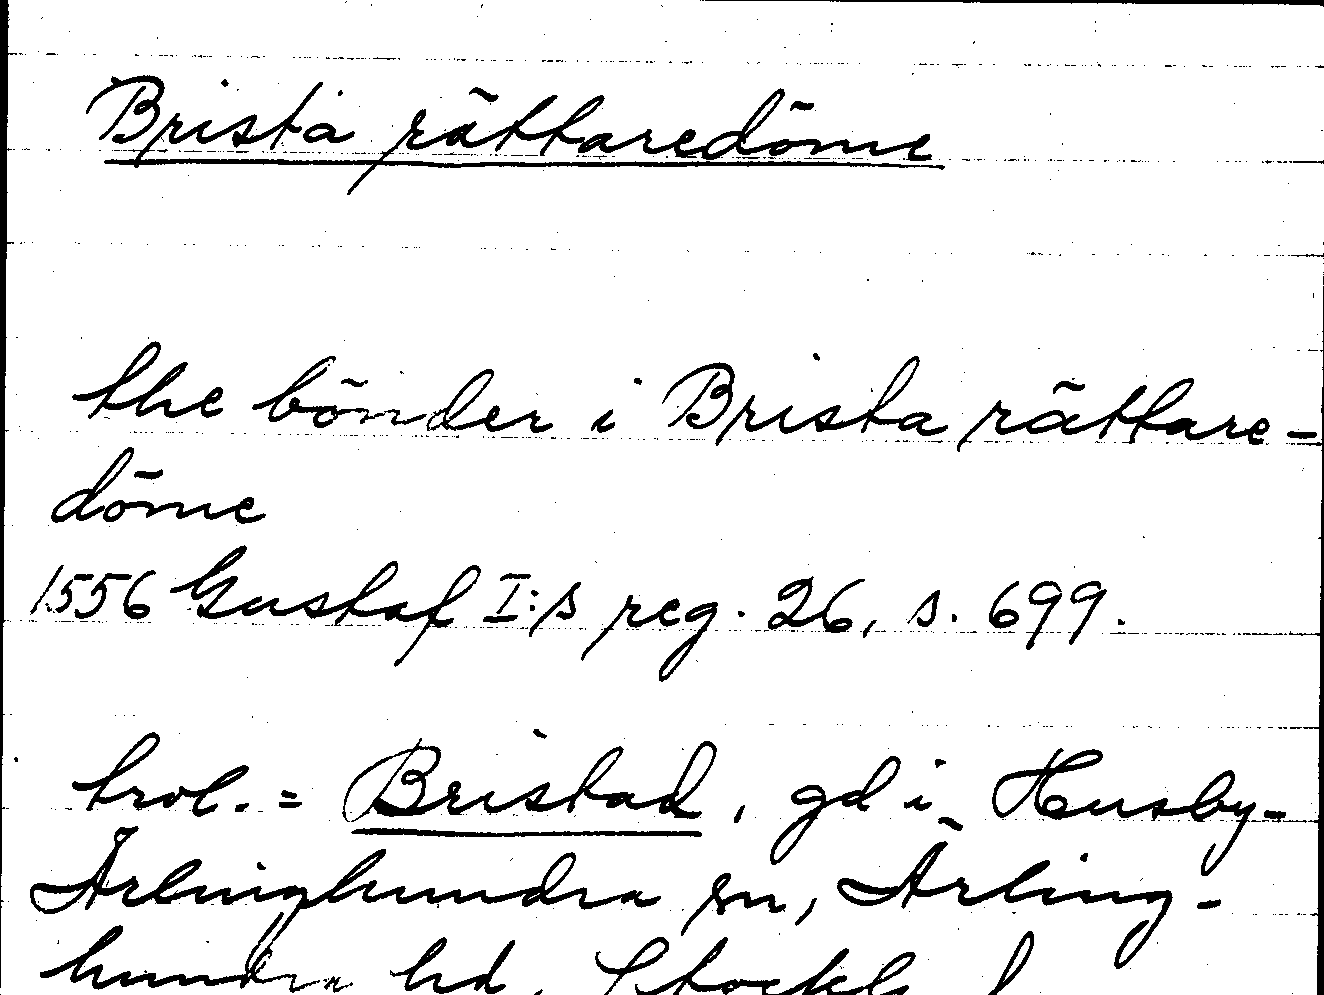 Brista rättaredöme
the bönder i Brista rättare-
döme
1556 Gustaf I:s reg. 26, s. 699.
trol. = Bristad, gd i Husby-
Ärlinghundra sn, Ärling-
hundra hd, Stockh. l